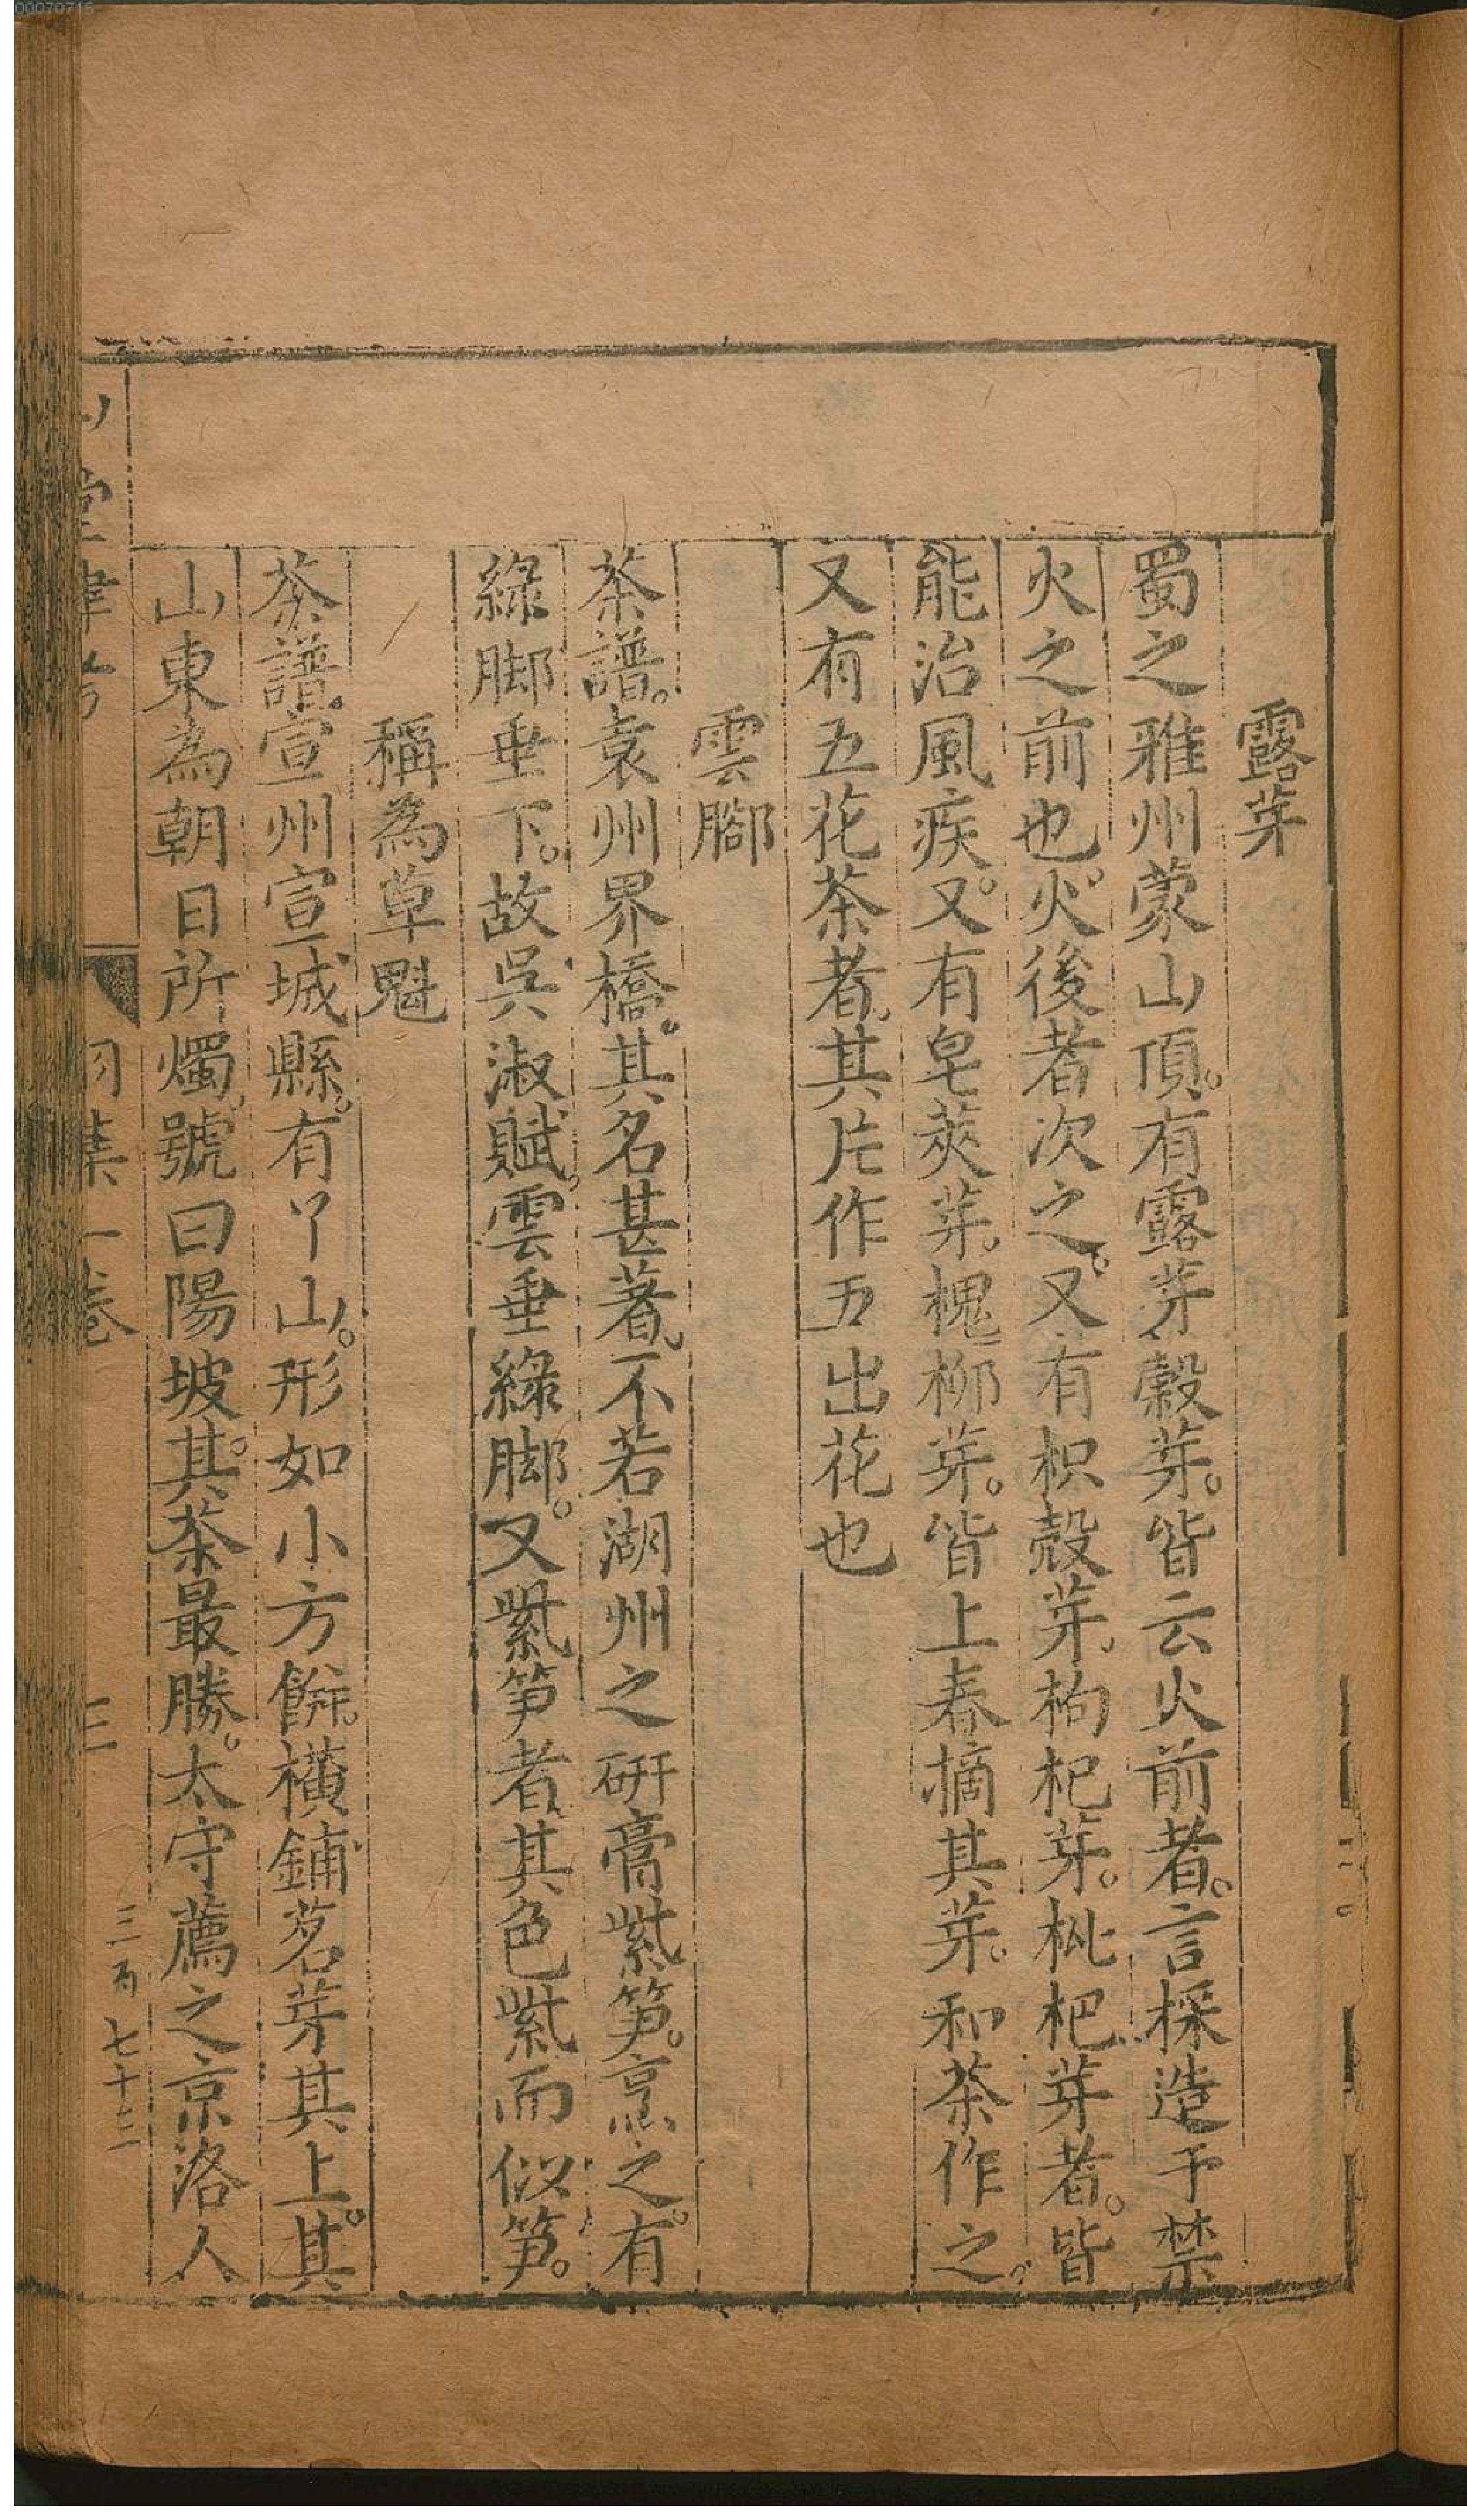 00070715
露芽
蜀之雅州蒙山頂。有露芽、穀芽。皆云火前者。言採造于禁
火之前也。火後者次之。又有枳殼芽、枸杞芽。枇杷芽者。皆
能治風疾。又有皂莢芽、槐柳芽。皆上春摘其芽。和茶作之。
又有五花茶者。其片作五出花也
雲腳
茶譜。袁州界橋。其名甚著。不若湖州之研膏紫笋。烹之。有
綠脚垂下。故吳淑賦。雲垂綠脚。又紫笋者。其色紫而似笋。
稱為草魁
茶譜。宣州宣城縣。有丫山。形如小方餅。橫鋪茗芽其上。其
山東為朝日所燭。號曰陽坡。其茶最勝。太守薦之京洛人
山堂肆考
羽集一卷
三
三百七十三